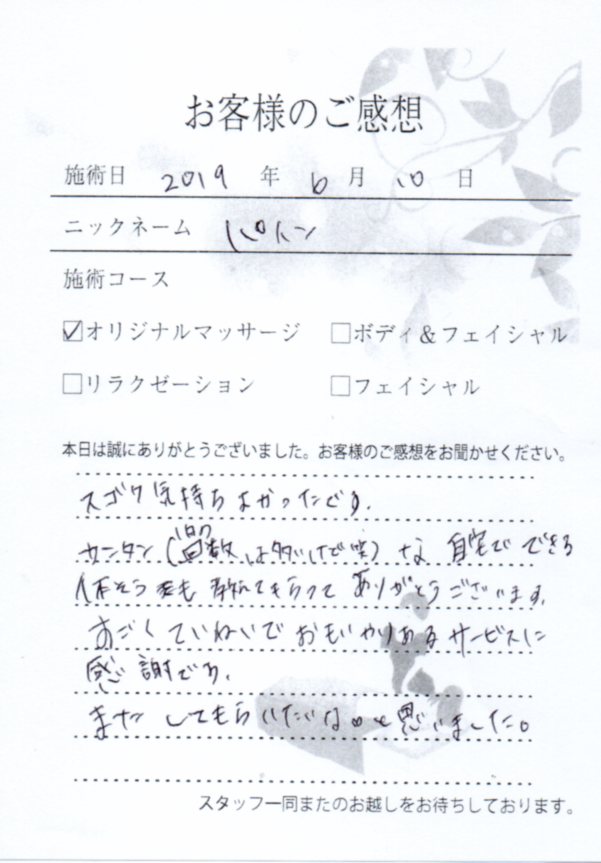 お客様のご感想
施術日 2019 年 6 月 10 日
ニックネーム パパン
施術コース
☑オリジナルマッサージ □ボディ&フェイシャル
□リラクゼーション □フェイシャル
本日は誠にありがとうございました。お客様のご感想をお聞かせください。
スゴク気持ちよかったです.
カンタン(回数は多いけど笑)な 自宅でできる
体そうも教えてもらって ありがとうございます.
すごくていねいでおもいやりあるサービスに
感謝です.
また してもらいたいなoと思いました。
スタッフ一同またのお越しをお待ちしております。